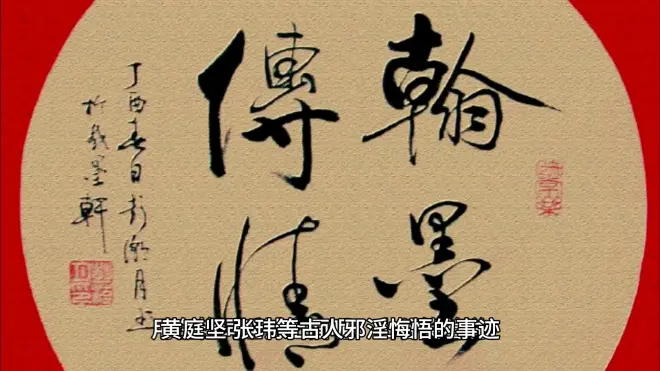 翰墨
傳情
丁酉春日
墨軒
黄庭坚张玮等古人邪淫悔悟的事迹